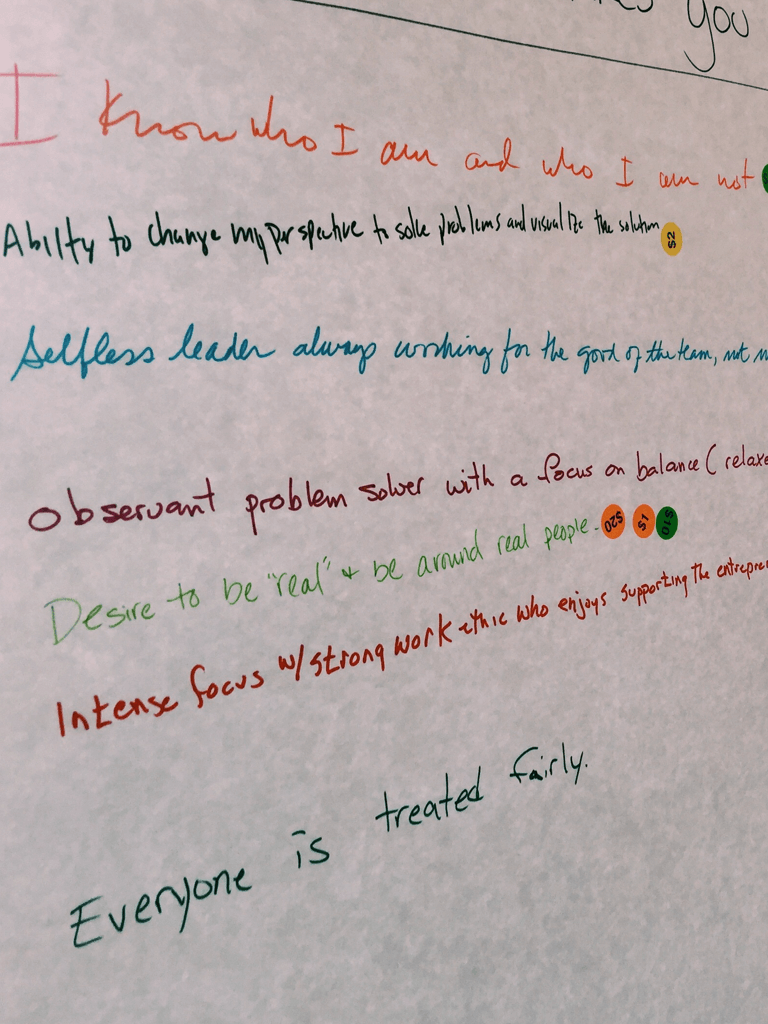 you
I know who I am and who I am not
Abilty to change my perspective to solve problems and visualize the solution
S2
Selfless leader always working for the good of the team, not
Observant problem solver with a focus on balance (relaxe
Desire to be "real" + be around real people.
S20 L5 S10
Intense focus w/strong work ethic who enjoys supporting the entrepren
Everyone is treated fairly.